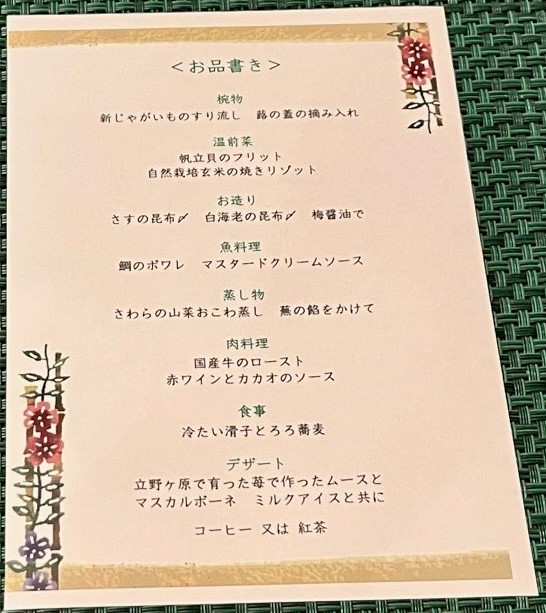 ＜お品書き＞
椀物
新じゃがいものすり流し　蕗の蓋の摘み入れ
温前菜
帆立貝のフリット
自然栽培玄米の焼きリゾット
お造り
さすの昆布〆　白海老の昆布〆　梅醤油で
魚料理
鯛のポワレ　マスタードクリームソース
蒸し物
さわらの山菜おこわ蒸し　蕪の餡をかけて
肉料理
国産牛のロースト
赤ワインとカカオのソース
食事
冷たい滑子とろろ蕎麦
デザート
立野ヶ原で育った苺で作ったムースと
マスカルポーネ　ミルクアイスと共に
コーヒー 又は 紅茶